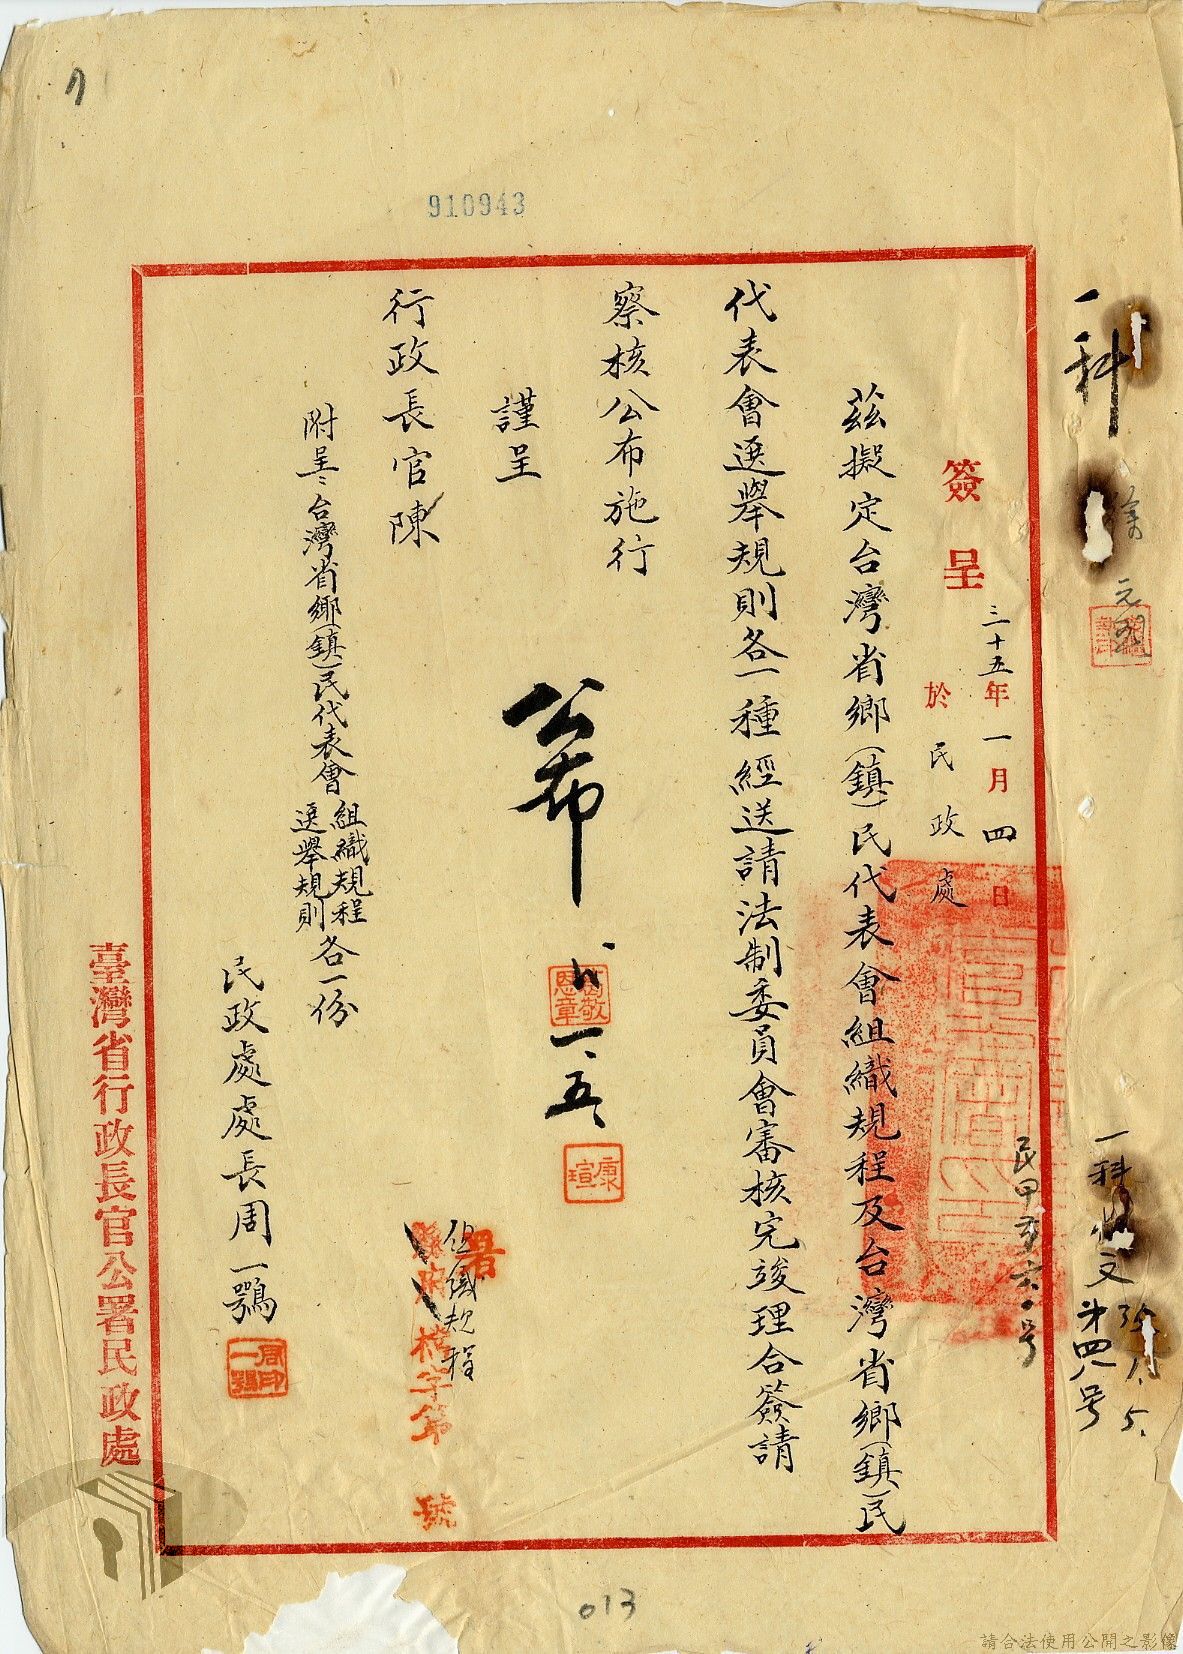 910943
一科
簽呈
三十五年一月四日
於民政處
茲擬定台灣省鄉(鎮)民代表會組織規程及台灣省鄉(鎮)民
代表會選舉規則各一種經送請法制委員會審核完竣理合簽請
察核公布施行
謹呈
行政長官陳
附呈:台灣省鄉(鎮)民代表會
組織規程
選舉規則
各一份
民政處處長周一鶚
周一鶚印
公布
一、五、
康瑄
組織規程
署
字第 號
臺灣省行政長官公署民政處
一科收文第四八号
35.1.5.
013
請合法使用公開之影像